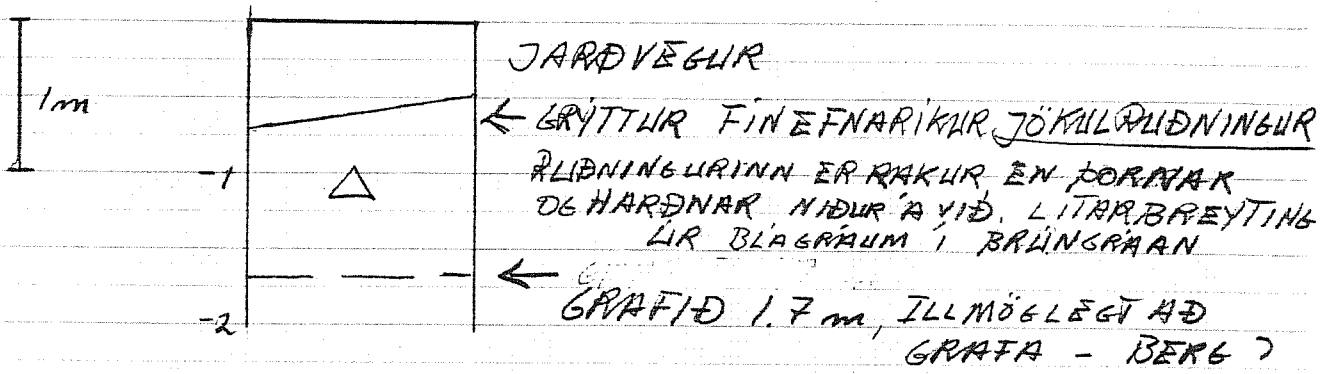 JARÐVEGUR
1m
← GRÝTTUR FÍNEFNARÍKUR JÖKULRUÐNINGUR
-1
RUÐNINGURINN ER RAKUR, EN ÞORNAR
OG HARÐNAR NIÐUR Á VIÐ. LITARBREYTING
ÚR BLÁGRÁUM Í BRÚNGRÁAN
←
GRAFIÐ 1.7 m, ILLMÖGLEGT AÐ
-2
GRAFA - BERG ?